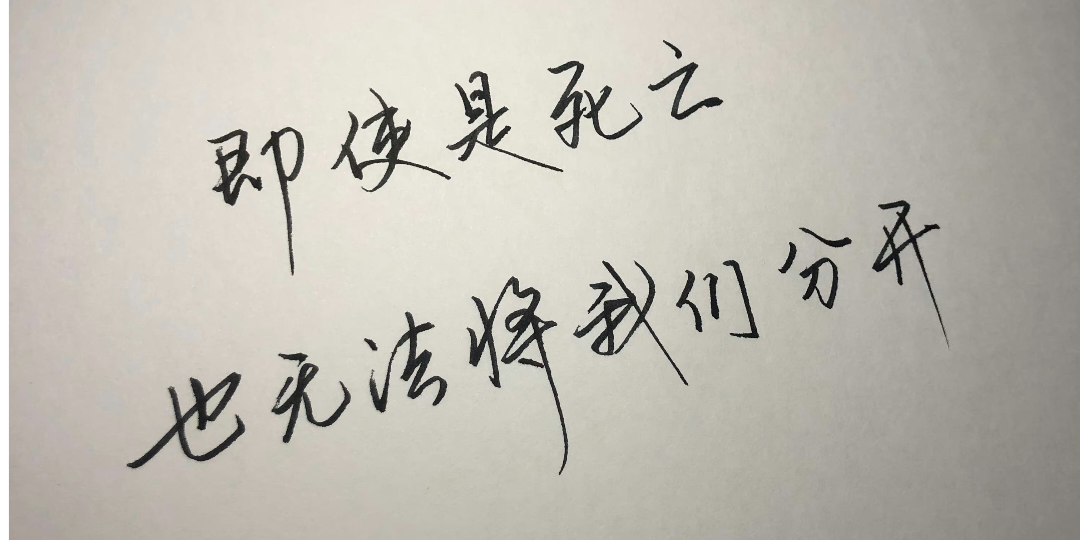 即使是死亡
也无法将我们分开